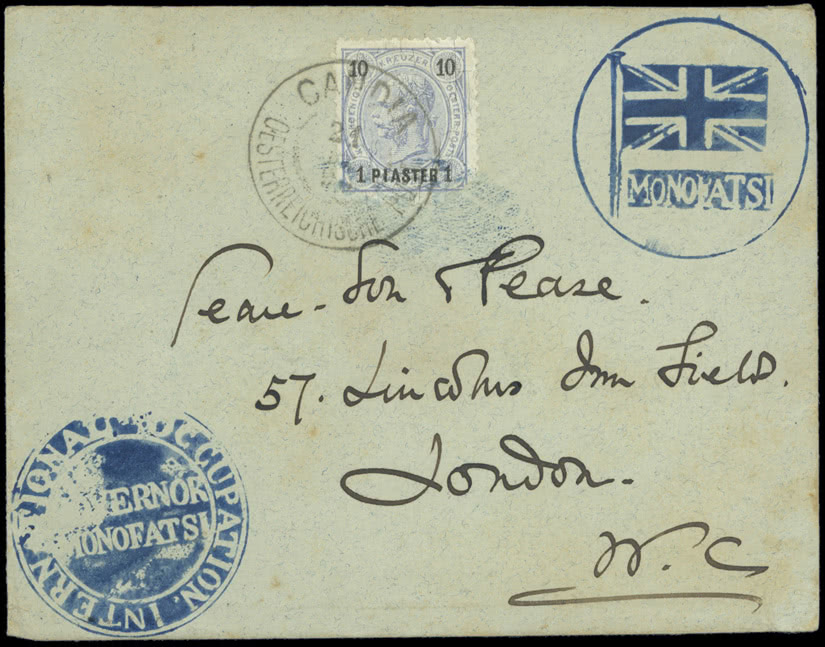 10 KREUZER 10
1 PIASTER 1
CANDIA
OESTERREICHISCHE
MONOFATSI
Son & Pease.
57. Lincolns Inn Field.
London.
W.C
INTERNATIONAL OCCUPATION.
GOVERNOR
MONOFATSI